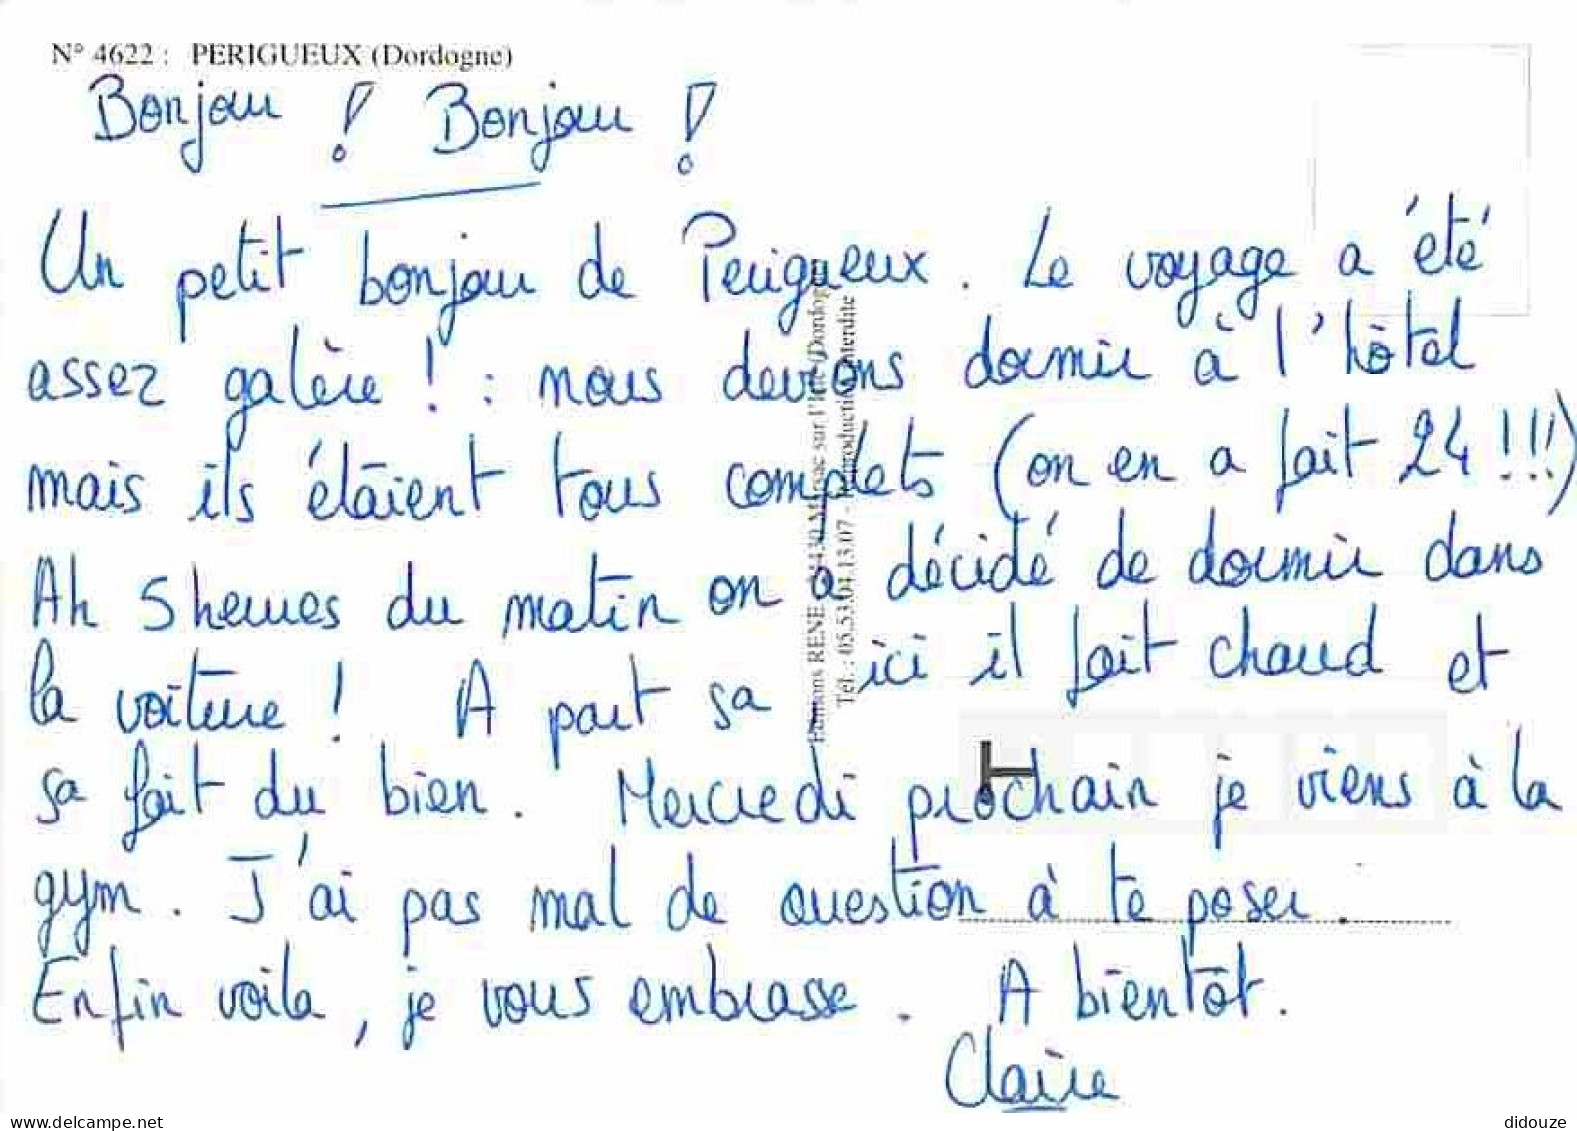 N° 4622 : PERIGUEUX (Dordogne)
Bonjour ! Bonjour !
Un petit bonjour de Perigueux. Le voyage a été
assez galère ! : nous devions dormir à l'hôtel
mais ils étaient tous complets (on en a fait 24 !!!)
Ah 5 heures du matin on a décidé de dormir dans
la voiture ! A part sa ici il fait chaud et
sa fait du bien. Mercredi prochain je viens à la
gym. J'ai pas mal de question à te poser.
Enfin voila, je vous embrasse. A bientôt.
Claire
Editions RENE 24430 Marsac sur l'Isle (Dordogne)
Tél. : 05.53.04.13.07 - Reproduction interdite
www.delcampe.net
didouze